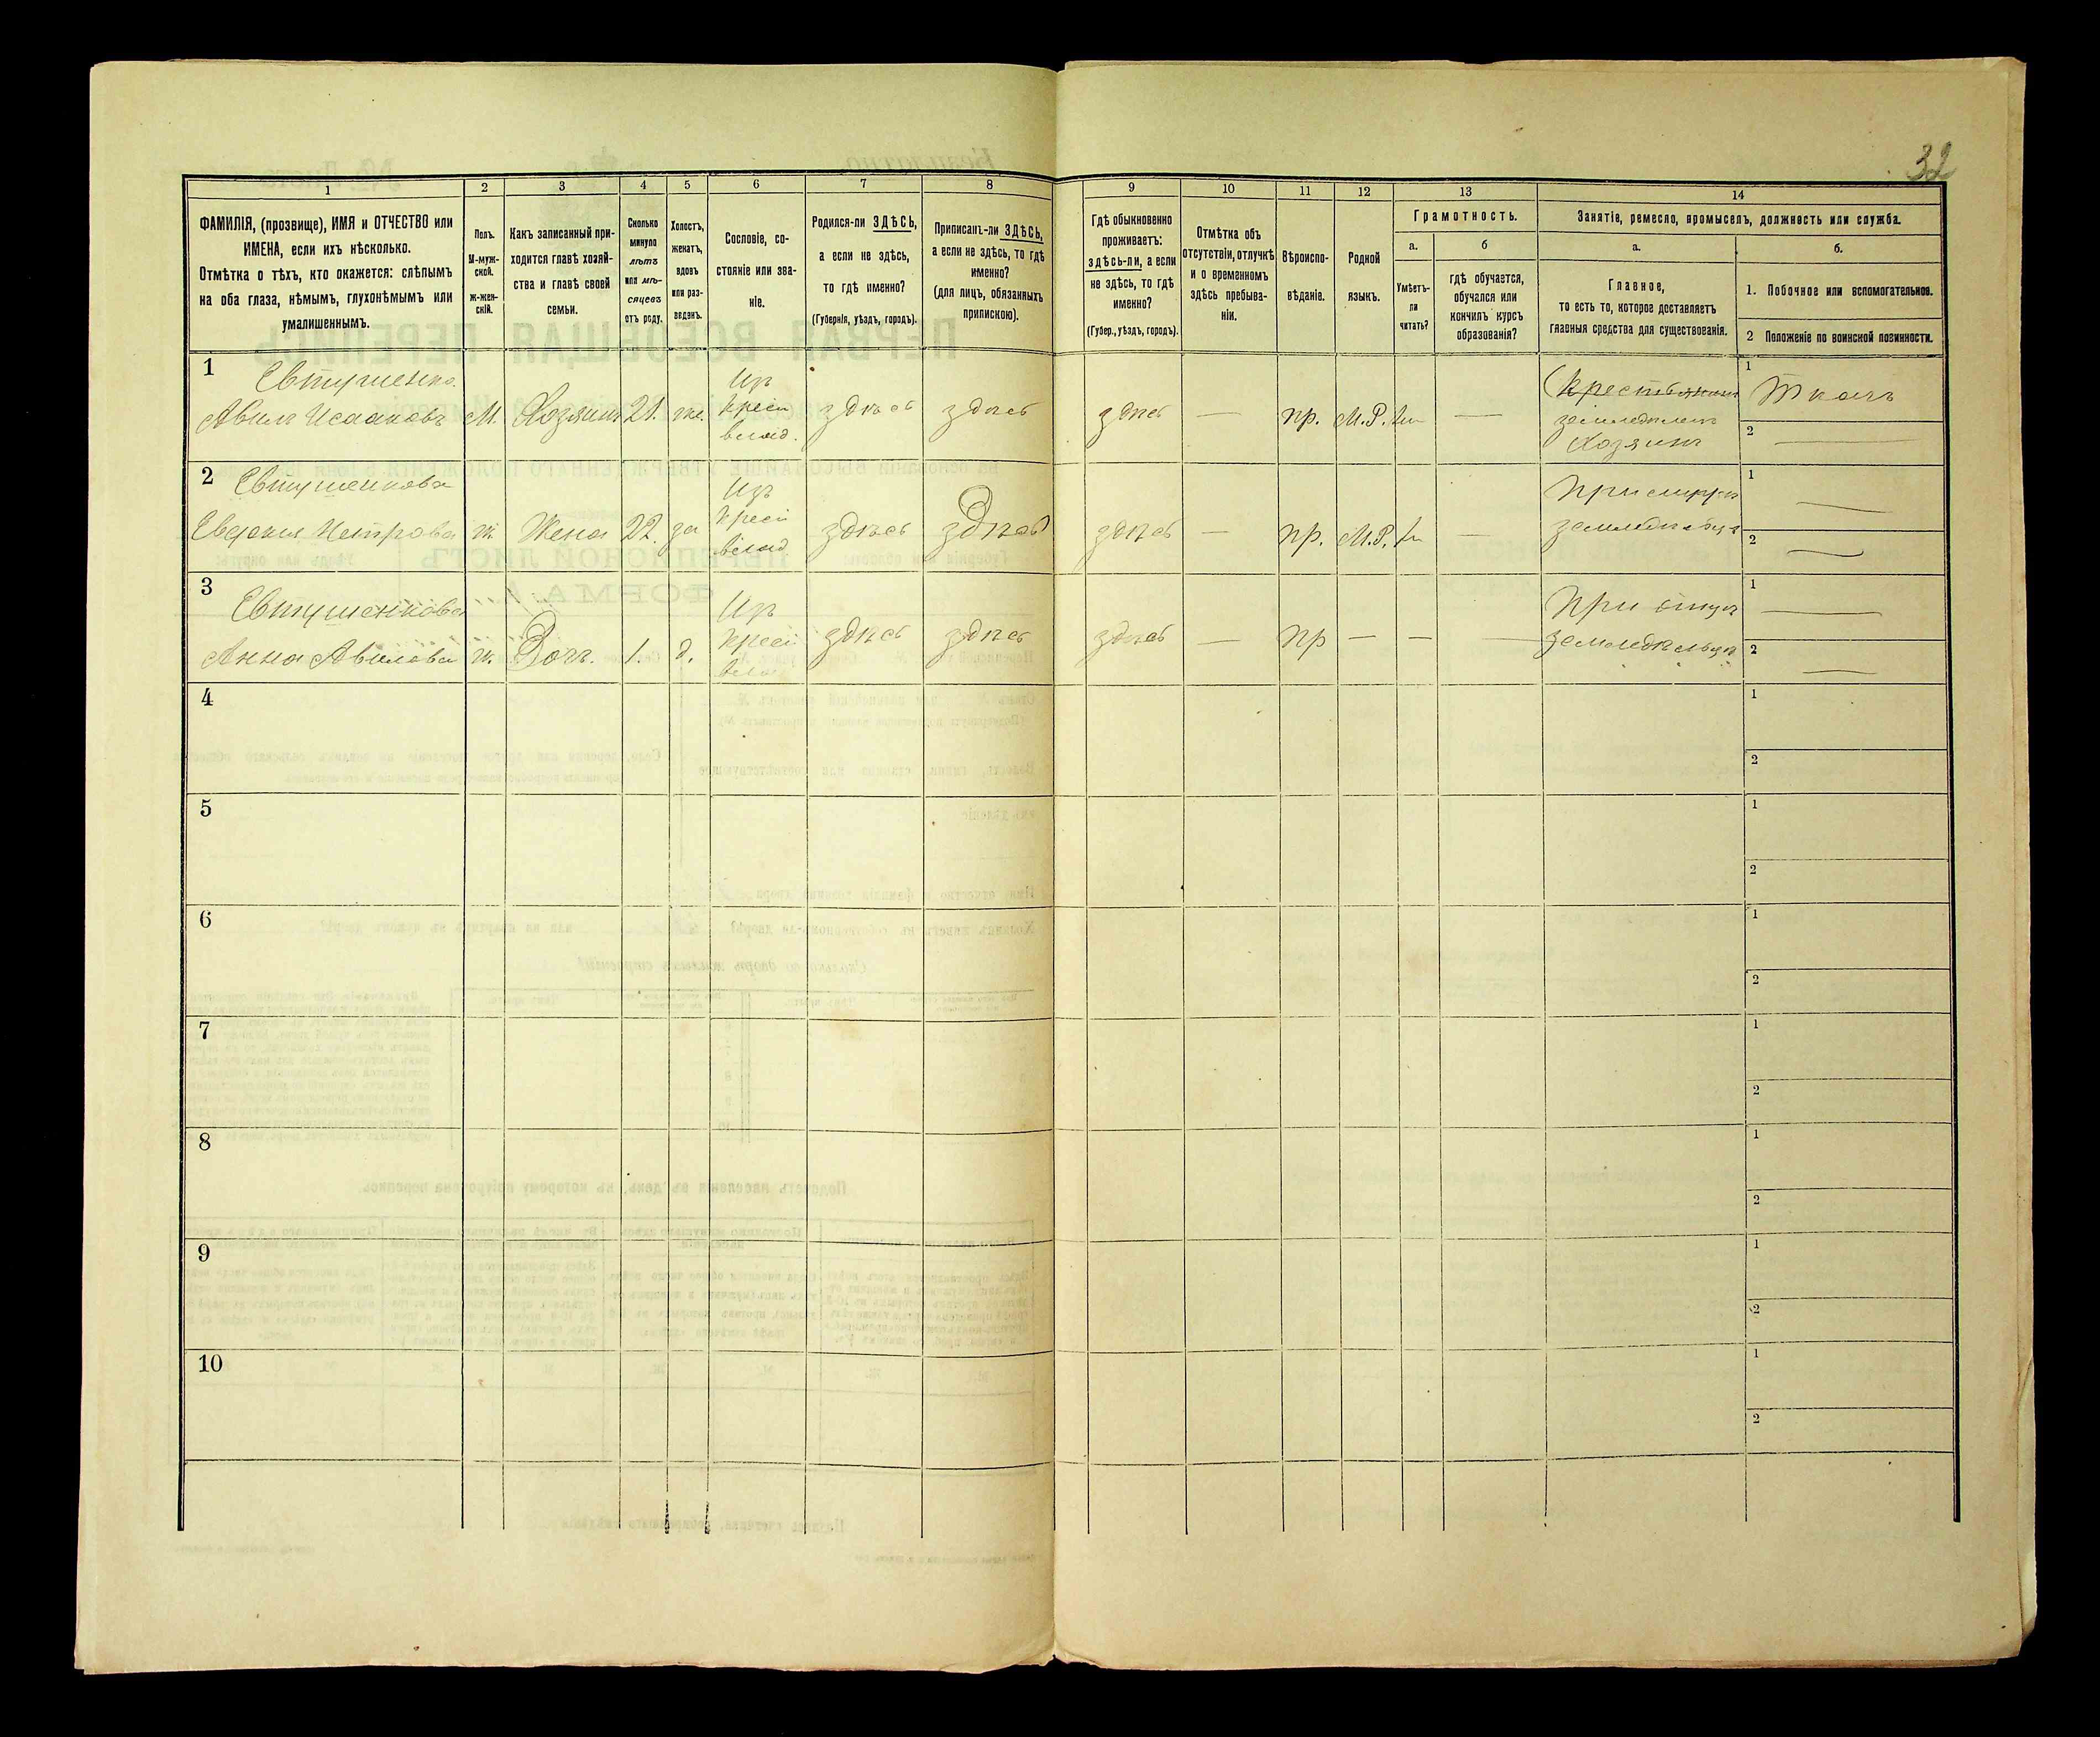 32
1
2
3
4
5
6
7
8
9
10
11
12
13
14
ФАМИЛІЯ, (прозвище), ИМЯ и ОТЧЕСТВО или
ИМЕНА, если ихъ нѣсколько.
Отмѣтка о тѣхъ, кто окажется: слѣпымъ
на оба глаза, нѣмымъ, глухонѣмымъ или
умалишеннымъ.
Полъ.
М-муж-
ской.
ж-жен-
скій.
Какъ записанный при-
ходится главѣ хозяй-
ства и главѣ своей
семьи.
Сколько
минуло
лѣтъ
или мѣ-
сяцевъ
отъ роду.
Холостъ,
женатъ,
вдовъ
или раз-
веденъ.
Сословіе, со-
стояніе или зва-
ніе.
Родился-ли ЗДѢСЬ,
а если не здѣсь,
то гдѣ именно?
(Губернія, уѣздъ, городъ).
Приписанъ-ли ЗДѢСЬ,
а если не здѣсь, то гдѣ
именно?
(для лицъ, обязанныхъ
припискою).
Гдѣ обыкновенно
проживаетъ:
здѣсь-ли, а если
не здѣсь, то гдѣ
именно?
(Губер., уѣздъ, городъ).
Отмѣтка объ
отсутствіи, отлучкѣ
и о временномъ
здѣсь пребыва-
ніи.
Вѣроиспо-
вѣданіе.
Родной
языкъ.
Грамотность.
а.
Умѣетъ-
ли
читать?
б
гдѣ обучается,
обучался или
кончилъ курсъ
образованія?
Занятіе, ремесло, промыселъ, должность или служба.
а.
Главное,
то есть то, которое доставляетъ
главныя средства для существованія.
б.
1. Побочное или вспомогательное.
2 Положеніе по воинской повинности.
1
Евтушенко
Авилъ Исааковъ
М.
Хозяинъ
21.
же.
Изъ
крест
влад.
здѣсь
здѣсь
здѣсь
—
пр.
М.Р.
—
земледѣлецъ
Хозяинъ
1
Ткачъ
2
—
2
Евтушенкова
Петрова
ж.
Жена
22.
за
Изъ
крест
влад
здѣсь
здѣсь
здѣсь
—
пр.
М.Р.
—
При
1
—
2
—
3
Евтушенкова
Анна Авилова
ж.
Дочь.
1.
д.
Изъ
крест
здѣсь
здѣсь
здѣсь
—
пр
—
—
—
При отцѣ
земледѣльцѣ
1
—
2
—
4
1
2
5
1
2
6
1
2
7
1
2
8
1
2
9
1
2
10
1
2